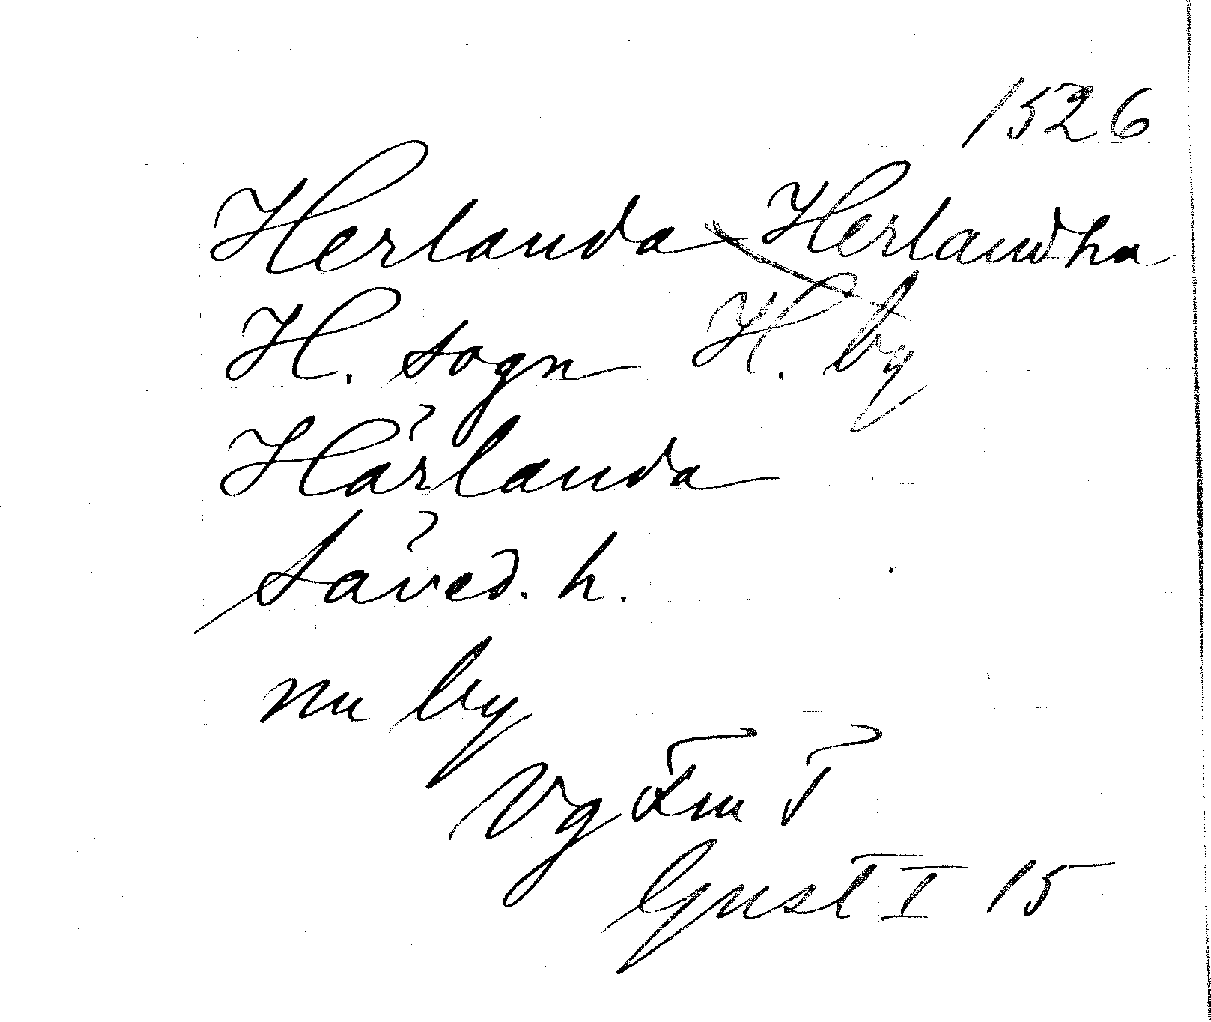 1526
Herlanda Herlandha
H. sogn H. by
Härlanda
Säved. h.
nu by
Vg Fm T
Gust I 15